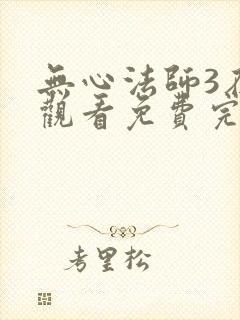 無心法師3
觀看免費完
考里松